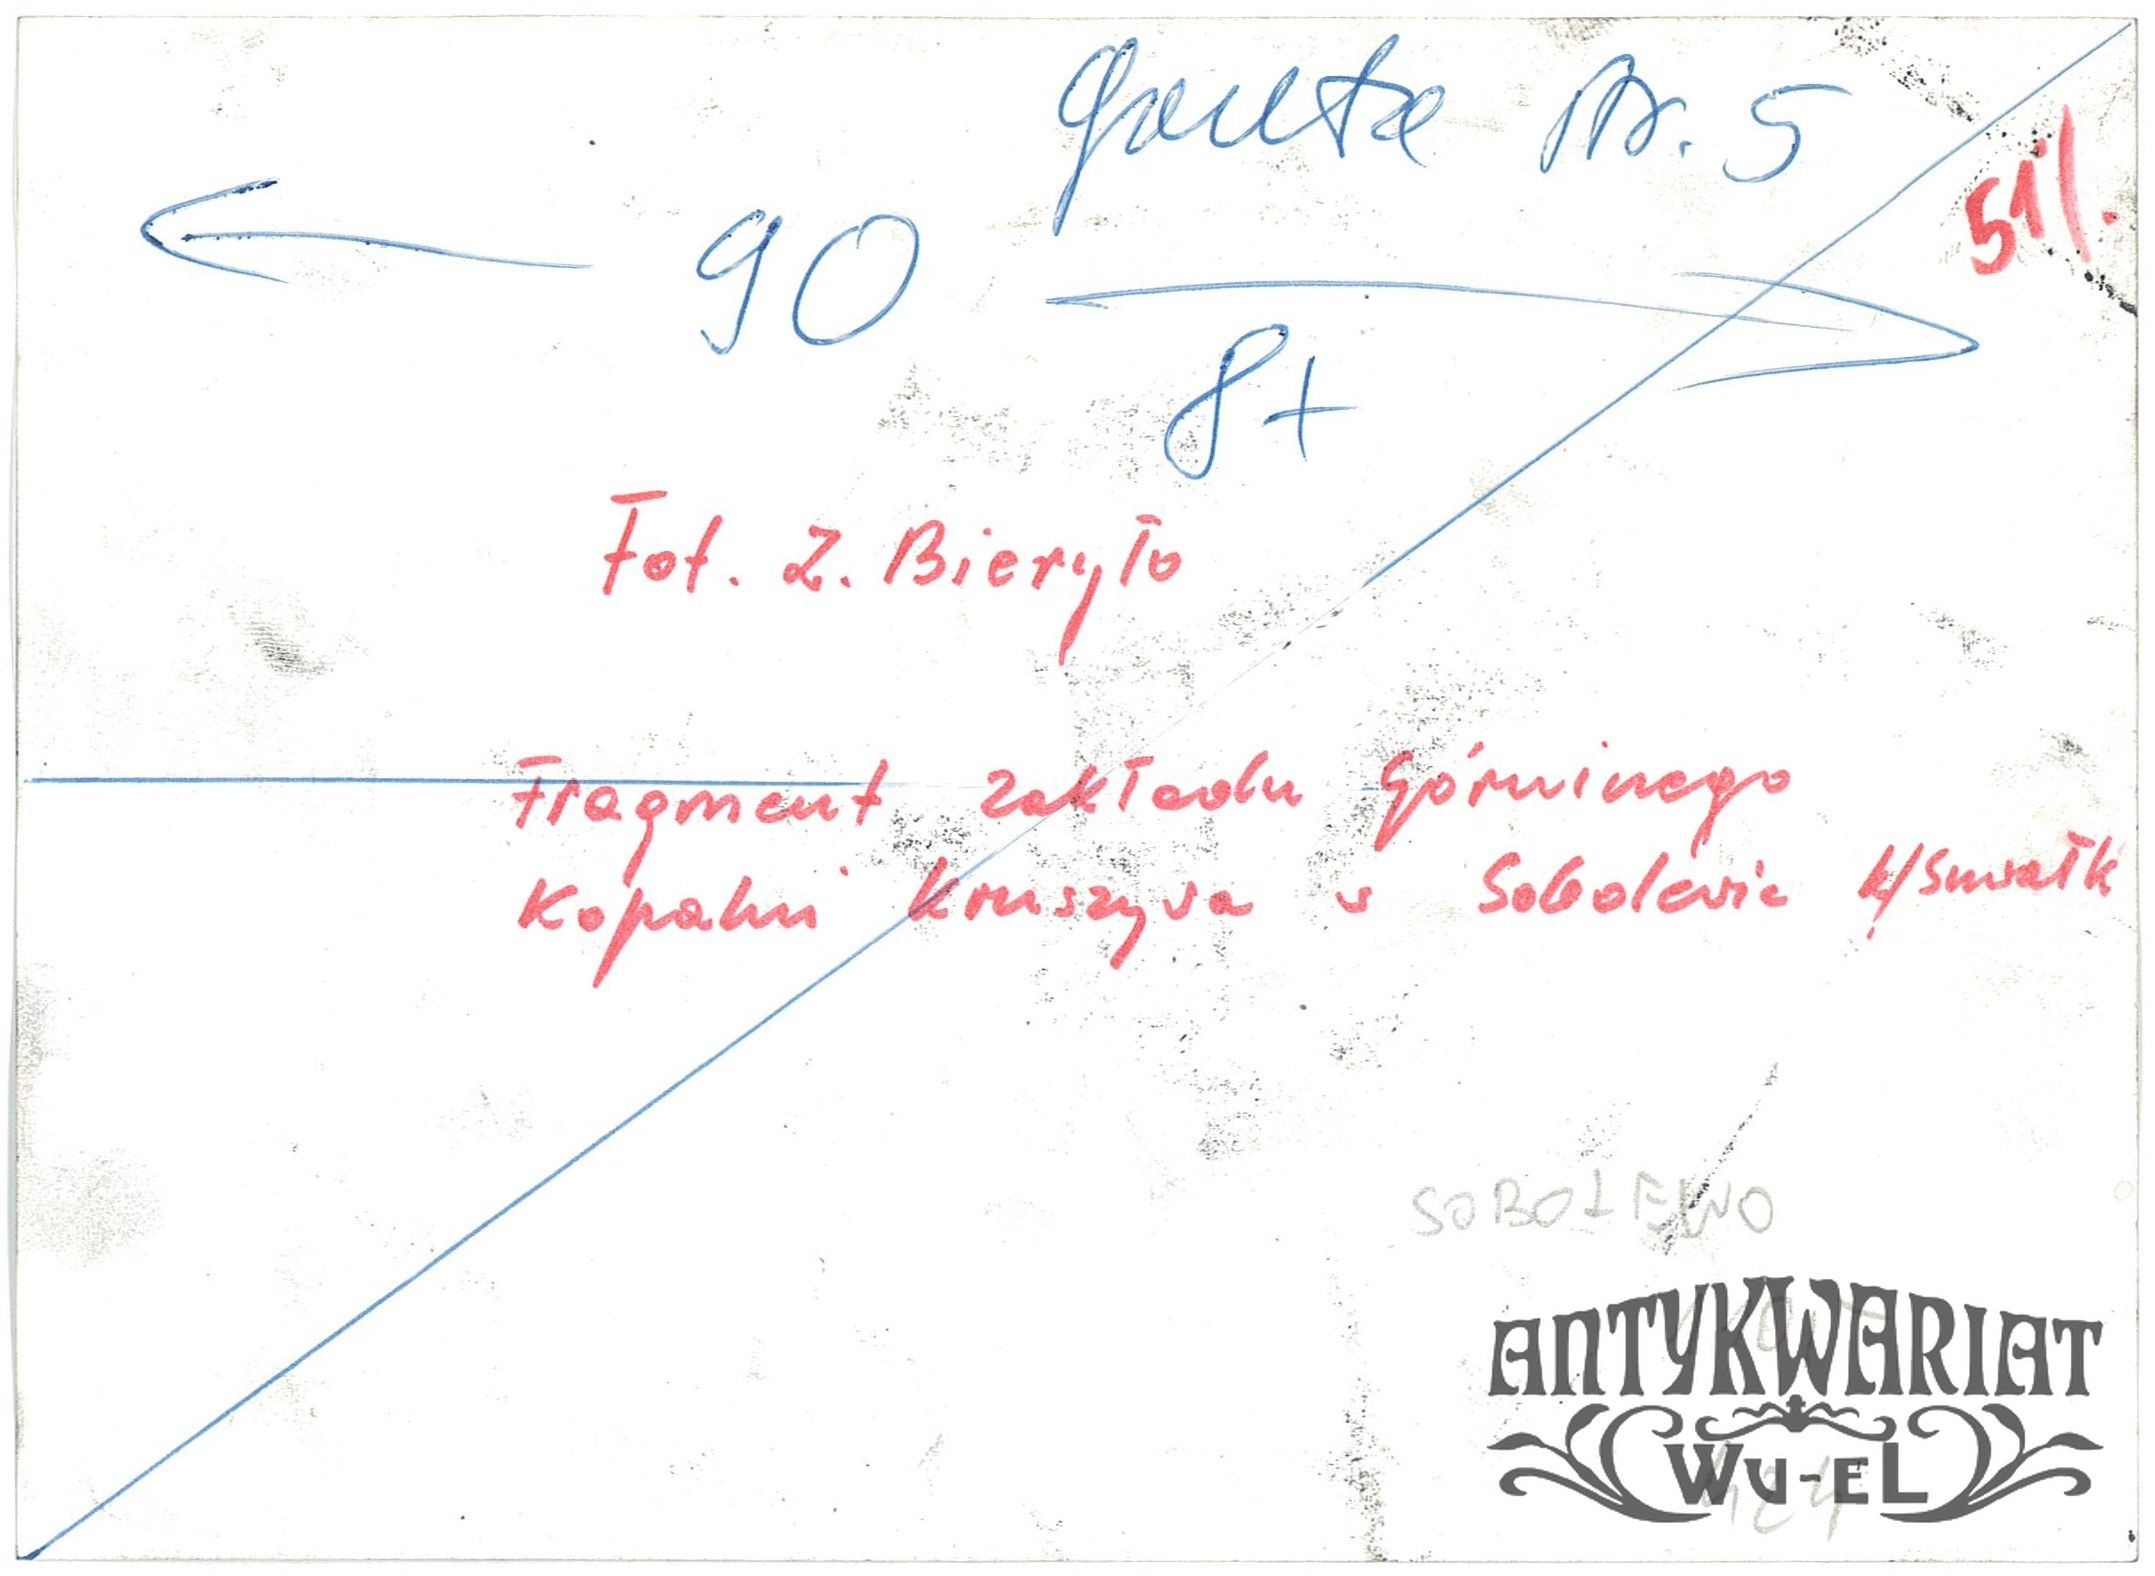 gazeta str. 5
51/.
90
8+
Fot. Z. Bieryło
Fragment zakładu Górniczego
Kopalni Kruszywa w Sobolewie k/Suwałk
SOBOLEWO
ANTYKWARIAT
WU-EL